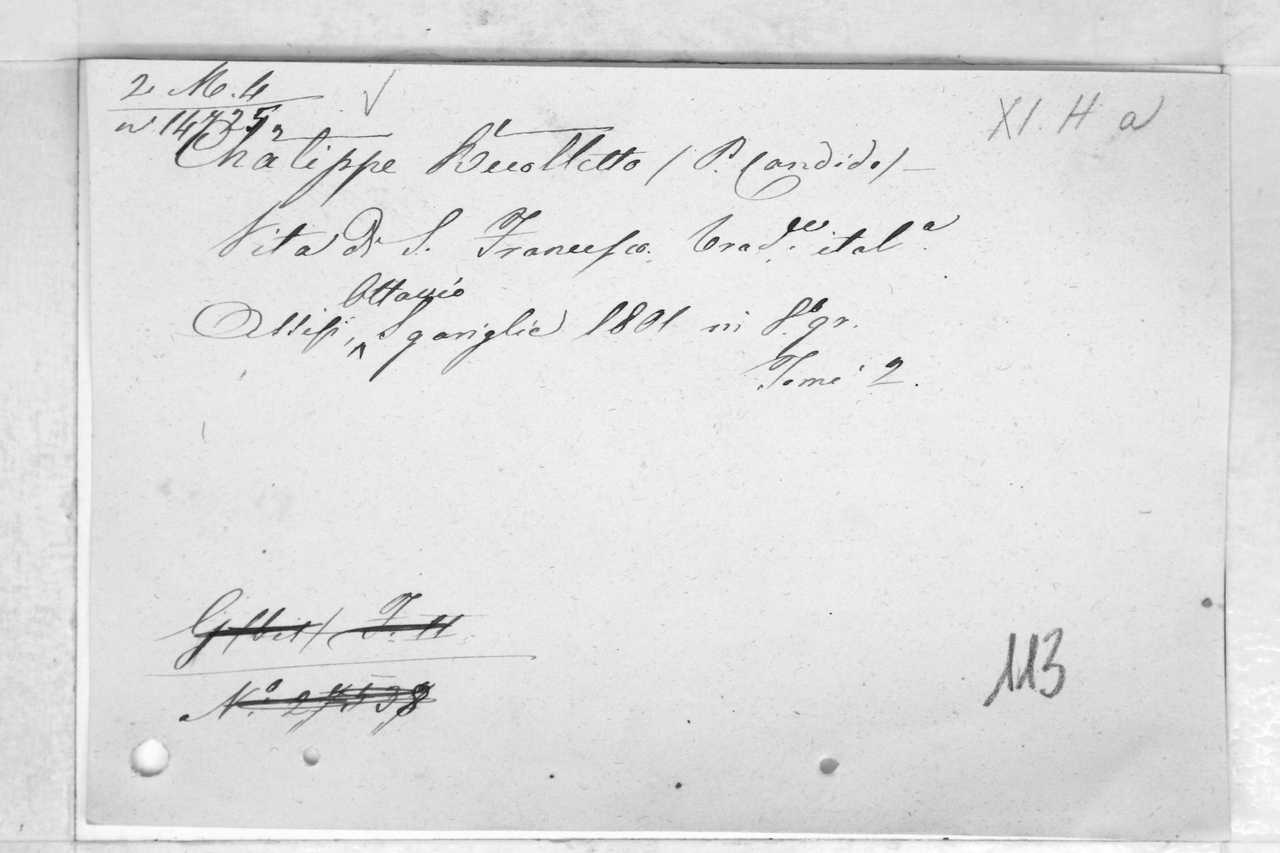 2. M. 4
XI. H a
nº 14725
Chalippe Recolletto (P. Candido) —
Vita di S. Francesco. Trad.ne ital.a
Ottavio
Assisi, Sgariglia 1801 in 8.º gr.
Tomi 2.
113
Nº. 27538